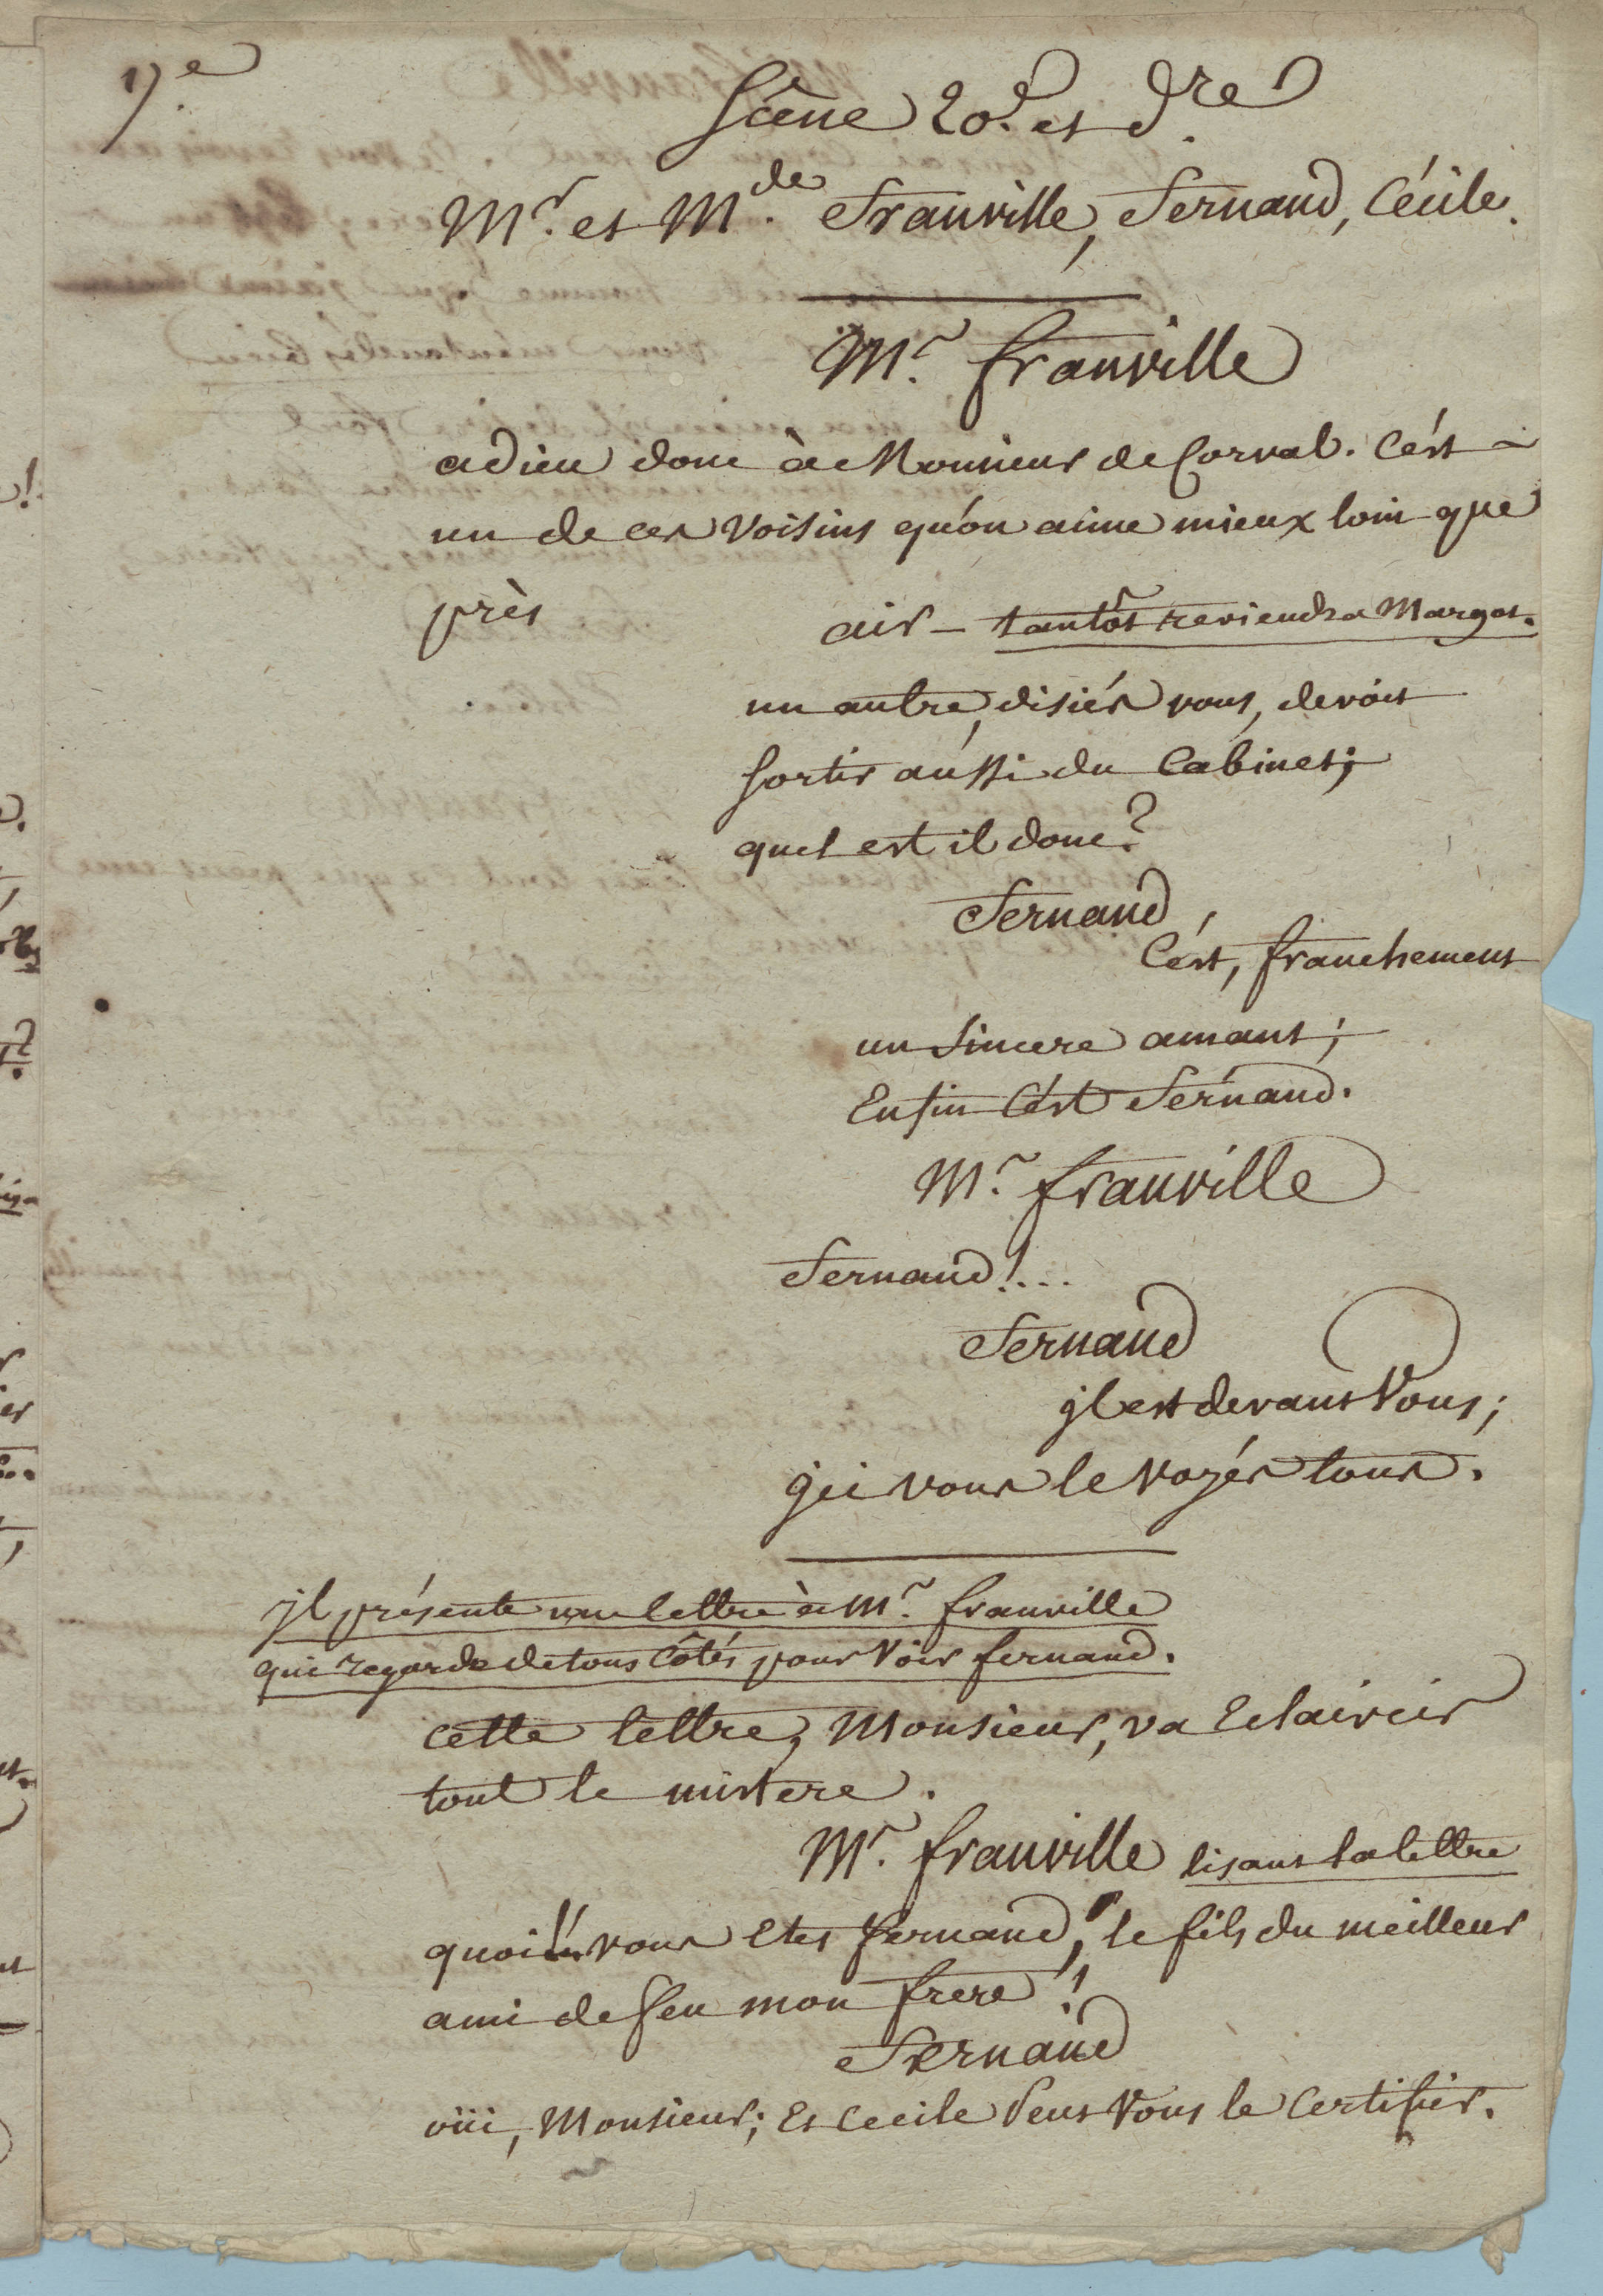 17.e
Scène 20.e et d.re
Mr. et Mde. Franville, Fernand, Cécile.
Mr. franville
adieu donc à Monsieur de Corval. C'est
un de ces voisins qu'on aime mieux loin que
près
air - tantôt reviendra Margot.
un autre, disiés vous, devoit
sortir aussi du Cabinet;
quel est il donc?
Fernand
C'est, franchement
un sincere amant;
Enfin C'est Fernand.
Mr. franville
Fernand!...
Fernand
jl est devant Vous;
jci vous le voyés tous.
jl présente une lettre à Mr. franville
qui regarde de tous Côtés pour Voir fernand.
cette lettre, Monsieur, va Eclaircir
tout le mistere.
Mr. franville lisant la lettre
quoi! vous Etes fernand, le fils du meilleur
ami de feu mon frere!
Fernand
oüi, Monsieur; Et Cecile Peut Vous le Certifier.